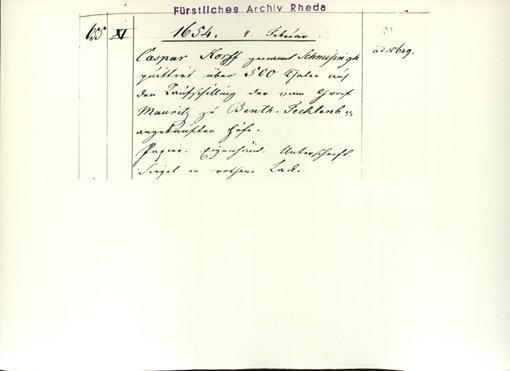 Fürstliches Archiv Rheda
655 XI 1654. 9 Februar.
Caspar Korff genannt Schmising
quittirt über 500 Thaler auf
den Kaufschilling der vom Graf
Mauritz zu Benth. Tecklenb.
angekauften Höfe.
Papier. Eigenhänd. Unterschrift
Siegel in rothem Lack.